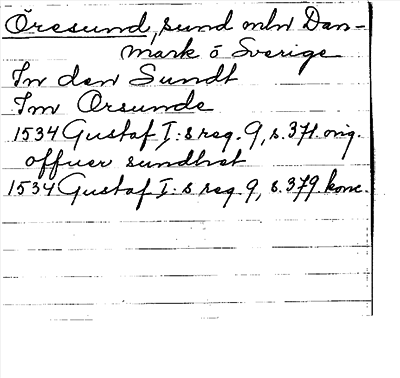 Öresund, sund mln Dan-
mark o Sverige
In den Sundt
Im Orsunde
1534 Gustaf I:s reg. 9, s. 371. orig.
offuer sundhet
1534 Gustaf I:s reg. 9, s. 379. konc.